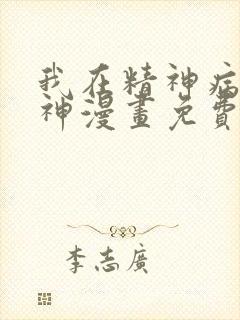 我在精神病
神漫畫免費
李志廣